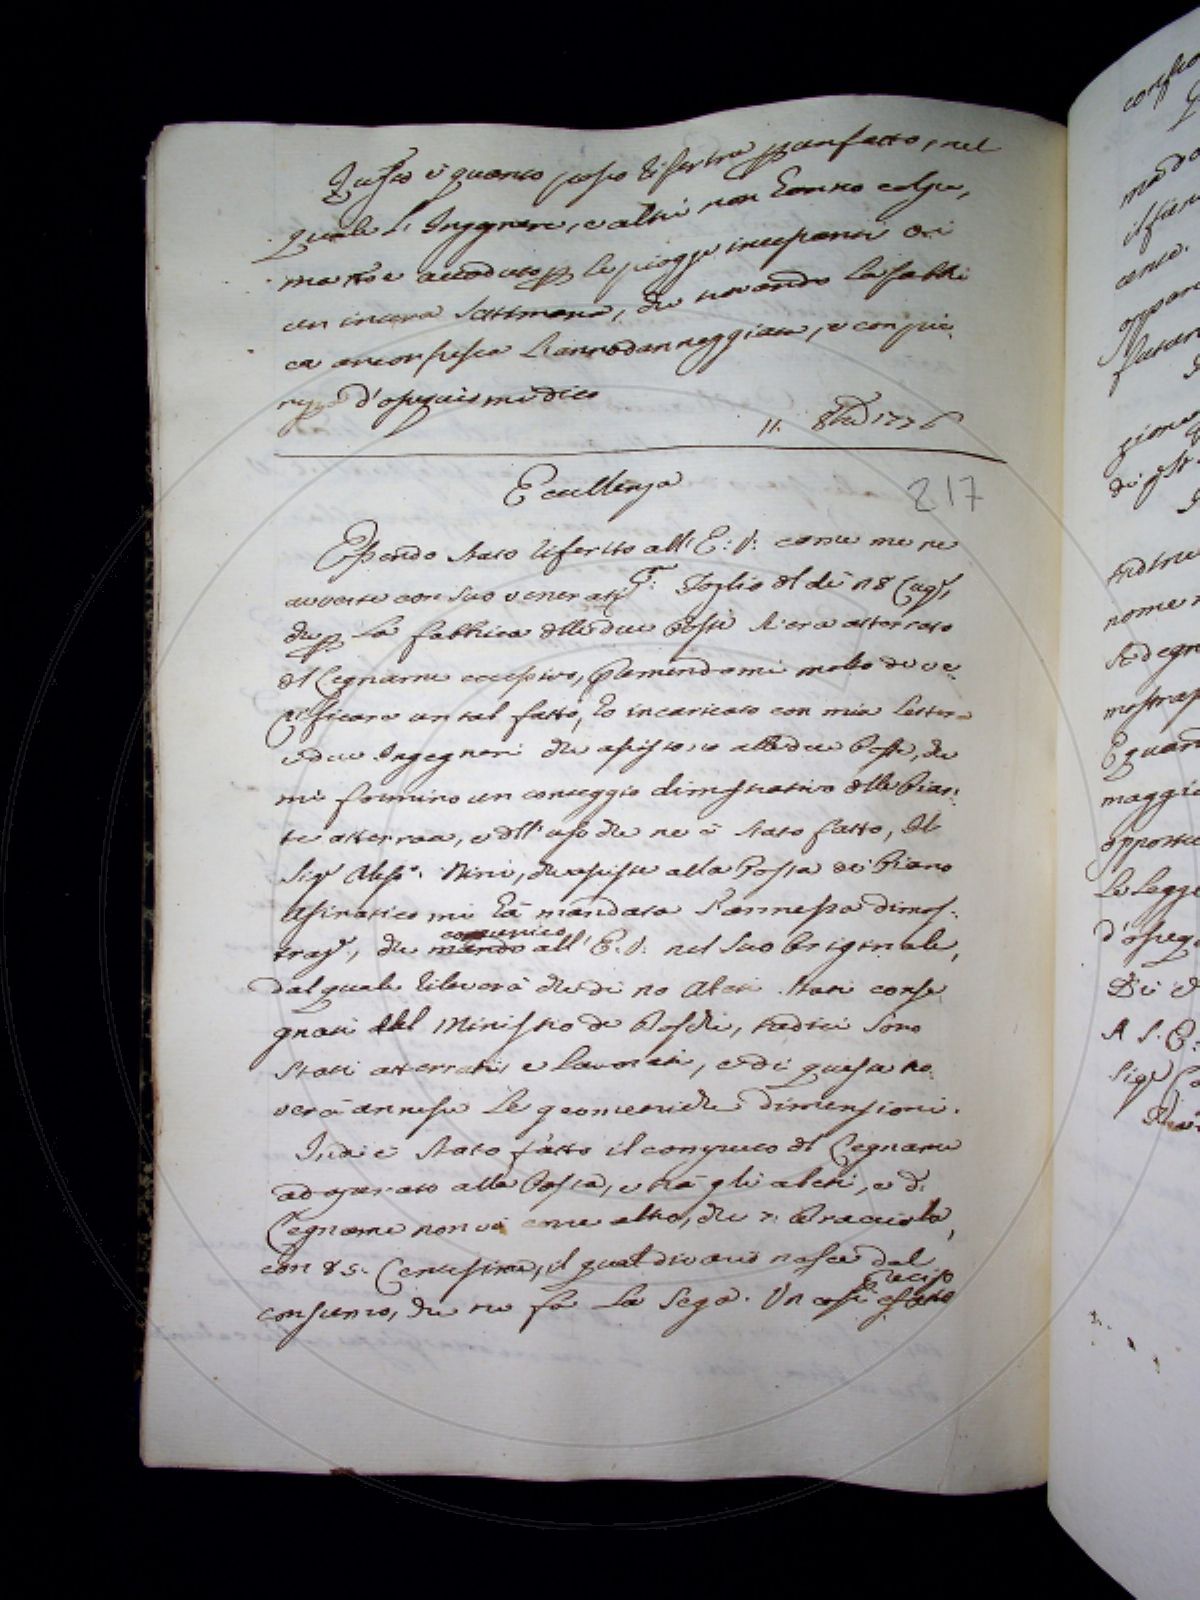 Questo è quanto posso riferire p un fatto, nel
quale l'Ingegnere, e altri non hanno colpa,
ma ne è accaduto p le piogge incessanti di
un intera Settimana, che trovando la fabbri
ca ancor fresca l'hanno danneggiata, e con pie
d'ossequio mi dico
11. 8bre 1776
Eccellenza
217
Essendo stato riferito all'E: V: come me ne
avverte con suo venerat.mo Foglio del dì 18 Cad.e,
che p la fabbrica delle due Poste s'era atterrato
del Legname eccessivo, premendomi molto di ve-
rificare un tal fatto, ho incaricato con mia Lettera
i due Ingegneri che assistono alle due Poste, che
mi formino un conteggio dimostrativo delle Pian-
te atterrate, e dell'uso che ne è stato fatto, Il
Sig.r Aless.o Nini, che assiste alla Posta di Piano
Asinatico mi hà mandata l'annessa dimos-
traz.e, che mando comunico all'E. V. nel suo Originale,
dal quale rileverà che di no Abeti stati conse
gnati dal Ministro di Boschi, tredici sono
stati atterrati, e lavorati, e di questi tro
verà annesse le geometriche dimensioni.
Indi è stato fatto il computo del Legname
adoprato alla Posta, e trà gli abeti, e il
Legname non vi corre altro, che 7. Bracciola,
con 85. Centesimi, il qual divario nasce dal
consumo, che ne fà la Sega. Un così esatto preciso